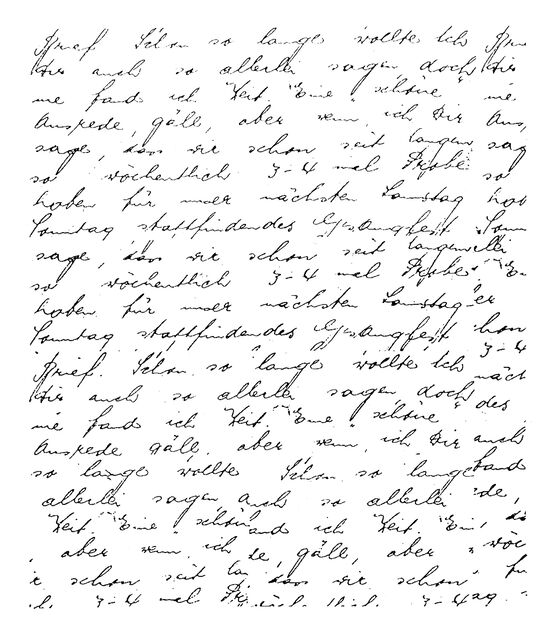 Brief. Schon so lange wollte Ich
Dir auch so allerlei sagen, doch Dir
nie fand ich Zeit. "Eine schöne" nie
Ausrede, gäll, aber wenn ich Dir Aus,
sage, dass wir schon seit langem sag
so wöchentlich 3-4 mal Probe so
haben für unser nächsten Samstag hab
Sonntag stattfindendes Gesangfest Sonn
sage, dass wir schon seit langem llei
so wöchentlich 3-4 mal Probe "E
haben für unser nächsten Samstag er
Sonntag stattfindendes Gesangfest hon
3-4
Brief. Schon so lange wollte Ich näch
Dir auch so allerlei sagen, doch des
nie fand ich Zeit. "Eine schöne"
Ausrede gäll, aber wenn ich Dir auch
so lange wollte Schon so lange fand
allerlei sagen auch so allerlei de,
Zeit. "Eine schön and ich Zeit. "Ein
aber wenn ich de, gäll, aber wöc
schon seit lan dass wir schon fü
3-4 mal Pr 3-4 ag